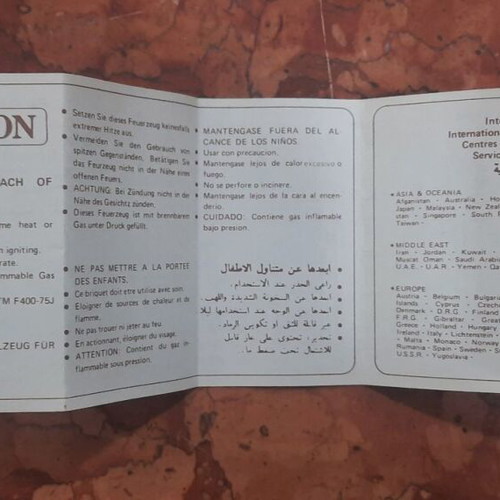 ON
ACH OF
me heat or
n igniting.
rate.
mmable Gas
TM F400-75J
LZEUG FÜR
Setzen Sie dieses Feuerzeug keinesfalls
extremer Hitze aus.
Vermeiden Sie den Gebrauch von
spitzen Gegenständen. Betätigen Sie
das Feurzeug nicht in der Nähe eines
offenen Feuers.
ACHTUNG: Bei Zündung nicht in der
Nähe des Gesichts zünden.
Dieses Feuerzeug ist mit brennbarem
Gas unter Druck gefüllt.
NE PAS METTRE A LA PORTEE
DES ENFANTS.
Ce briquet doit être utilisé avec soin.
Eloigner de sources de chaleur et de
flamme.
Ne pas trouer ni jeter au feu.
En actionnant, éloigner du visage.
ATTENTION: Contient du gas in-
flammable sous pression.
MANTENGASE FUERA DEL AL
CANCE DE LOS NIÑOS.
Usar con precaucion.
Mantengase lejos de calor excesivo o
fuego.
No se perfore o incinere.
Mantengase lejos de la cara al encen-
derlo.
CUIDADO: Contiene gas inflamable
bajo presion.
ابعدها عن متناول الاطفال
راعى الحذر عند الاستخدام.
ابعدها عن السخونة الشديدة واللهب.
ابعدها عن الوجه عند استخدامها
غير قابلة للثقب او تكوين الرماد.
تحذير: تحتوى على غاز قابل
للاشتعال تحت ضغط
Inte
Internation
Centres
Servic
ASIA & OCEANIA
Afganistan - Australia - Ho
Japan - Malaysia - New Zeal
stan - Singapore - South
Taiwan -
MIDDLE EAST
Iran - Jordan - Kuwait -
Muscat Oman - Saudi Arabi
U.A.E. - U.A.R - Yemen - Qa
EUROPE
Austria - Belgium - Bulgar
Islands - Cyprus - Czech
Denmark - D.R.G - Finland
F.R.G - Gibraltar - Great
Greece - Holland - Hungary
Ireland - Italy - Liechtenstein -
- Malta - Monaco - Norway
Rumania - Spain - Sweden - S
U.S.S.R - Yugoslavia -